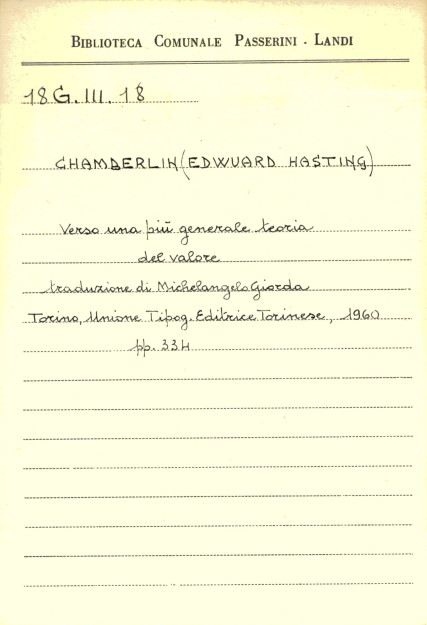 BIBLIOTECA COMUNALE PASSERINI - LANDI
18G.III.18
CHAMBERLIN (EDWUARD HASTING)
Verso una più generale teoria
del valore
traduzione di Michelangelo Giorda
Torino, Unione Tipog. Editrice Torinese, 1960
pp. 334